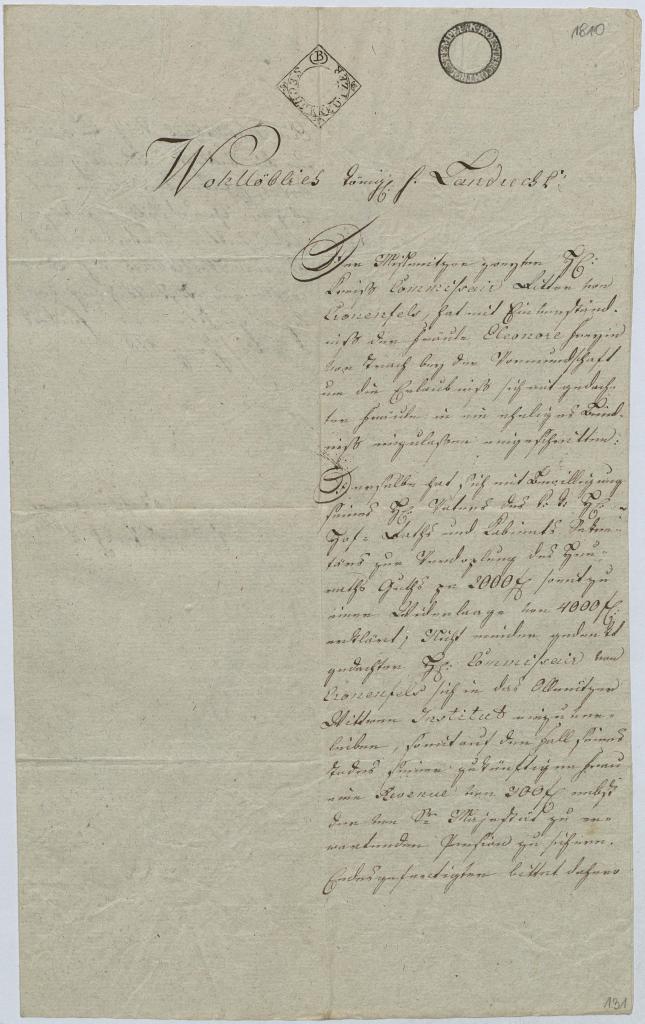 1810
B
SECHS KREUTZER
Wohllöblich königl. k. Landrecht!
Der Mistrnitzer zweyter H:
Kreiß Commissair Ritter von
Cronenfels, hat mit Einverständ-
niß der Fräule Eleonore Freyin
von bey der Vormundschaft
um die Erlaubniß sich mit gedach-
ter Fräule in ein eheliges Bünd-
niß einzulassen eingeschritten:
Derselbe hat sich mit Bewilligung
seines H: Vaters des k: k: H:
Hof-Raths und Kabinets Sekre-
tärs zur Verdoplung des Heu-
raths Guths pr 2000 f somit zu
einer Widerlaage von 4000 f:
erklärt; Nicht minder gedenkt
gedachter H: Commissair von
Cronenfels sich in das Ollmützer
Wittwen Institut einzuver-
leiben, somit auf den Fall seines
Todes seiner zukünftigen Frau
eine Revenue von 200 f nebst
der von Sr Majestät zu er-
wartenden Pension zu sichern.
Endesgefertigter bittet dahero
131